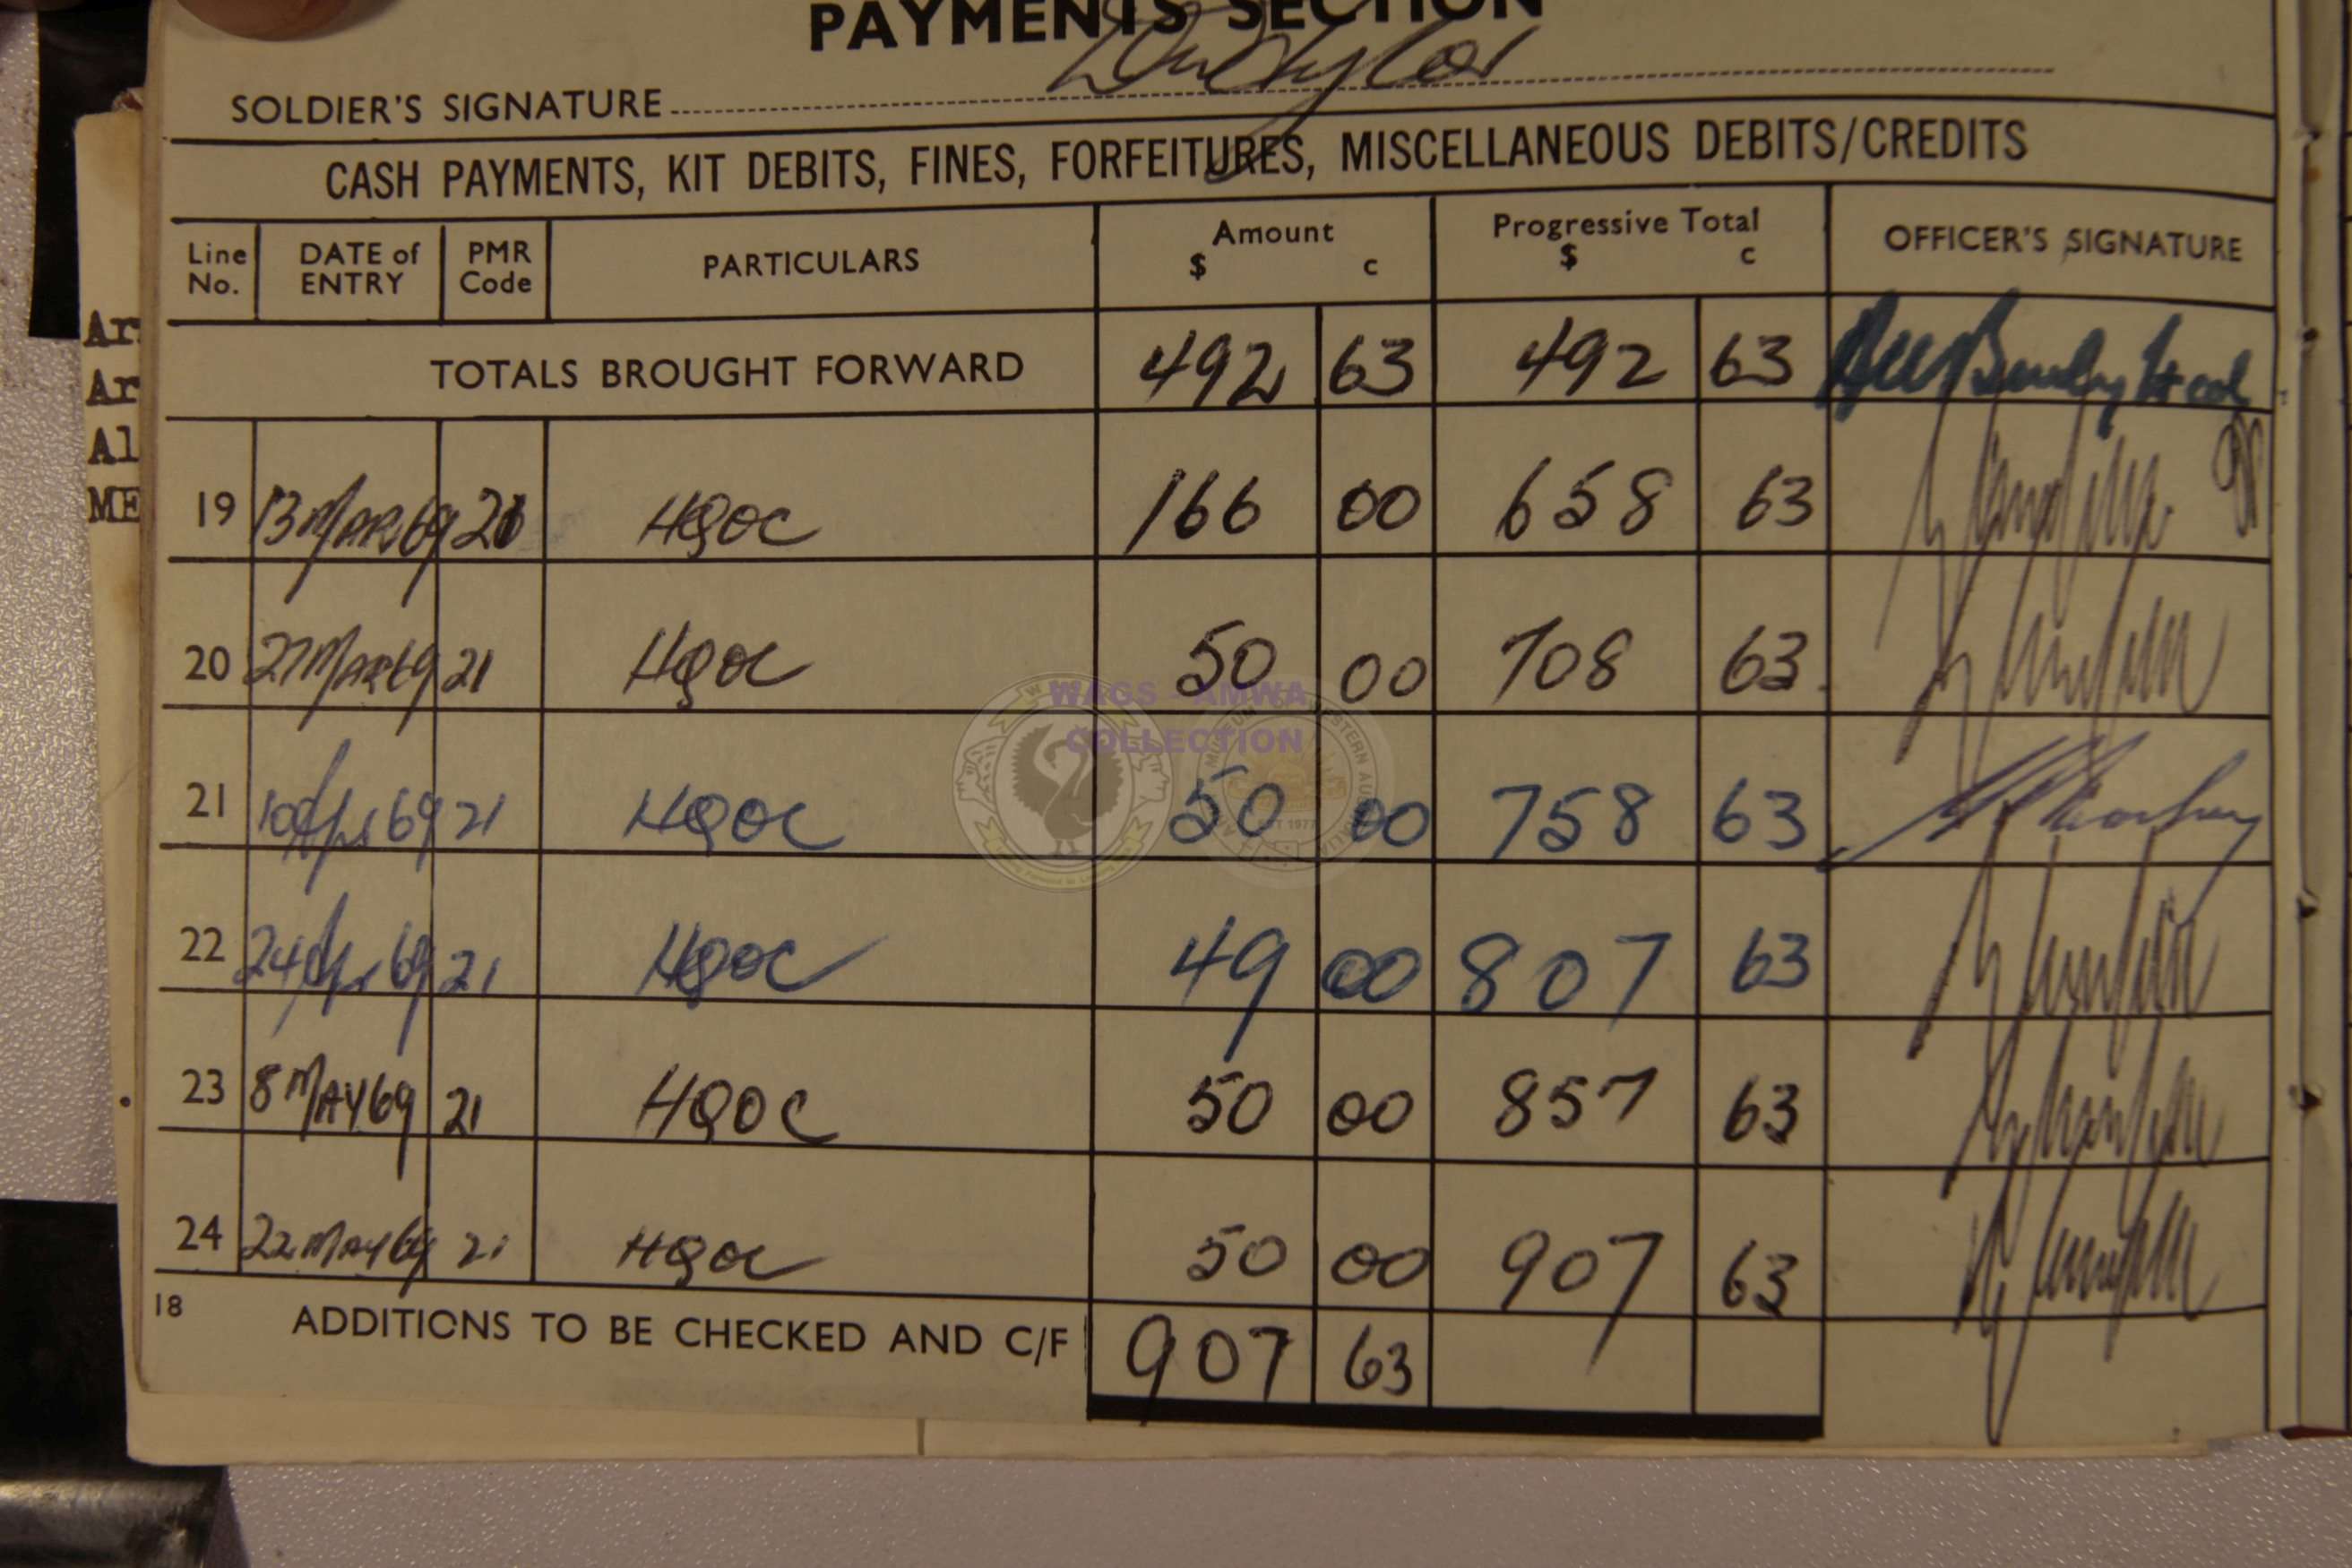 PAYMENTS SECTION
SOLDIER'S SIGNATURE
CASH PAYMENTS, KIT DEBITS, FINES, FORFEITURES, MISCELLANEOUS DEBITS/CREDITS
Line No. DATE of ENTRY PMR Code PARTICULARS Amount $ c Progressive Total $ c OFFICER'S SIGNATURE
TOTALS BROUGHT FORWARD 492 63 492 63
19 13 MAR 69 21 HQOC 166 00 658 63
20 27 MAR 69 21 HQOC 50 00 708 63
21 10 Apr 69 21 HQOC 50 00 758 63
22 24 Apr 69 21 HQOC 49 00 807 63
23 8 MAY 69 21 HQOC 50 00 857 63
24 22 MAY 69 21 HQOC 50 00 907 63
18 ADDITIONS TO BE CHECKED AND C/F 907 63
Ar
Ar
Al
ME
WAGS - AMWA
COLLECTION